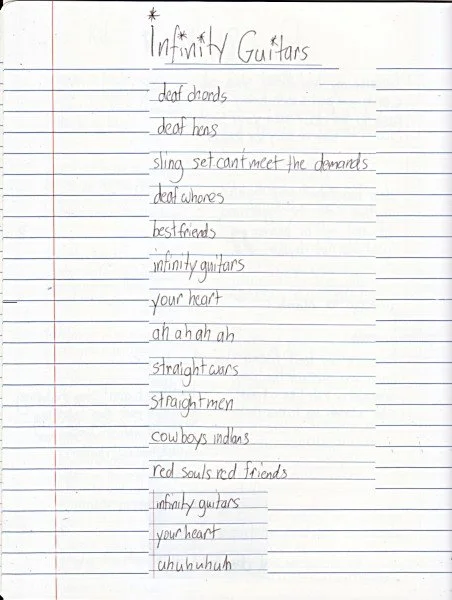 *
Infinity Guitars
deaf chords
deaf hens
sling set can't meet the demands
deaf whores
best friends
infinity guitars
your heart
ah ah ah ah
straight wars
straight men
cowboys indians
red souls red friends
infinity guitars
your heart
uhuhuhuh